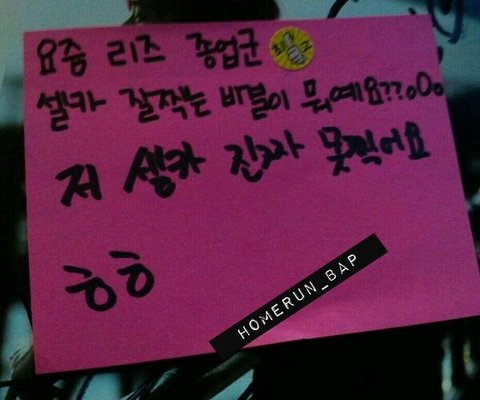 요즘 리즈 종업군 최고
셀카 잘찍는 비결이 뭐예요??o0o
저 셀카 진짜 못찍어요
ㅎㅎ
HOMERUN_BAP